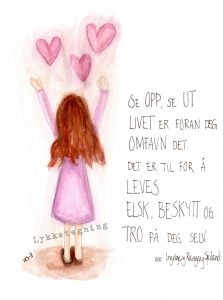 SE OPP, SE UT
LIVET ER FORAN DEG
OMFAVN DET
DET ER TIL FOR Å
LEVES
ELSK, BESKYTT OG
TRO PÅ DEG SELV.
Lykketegning